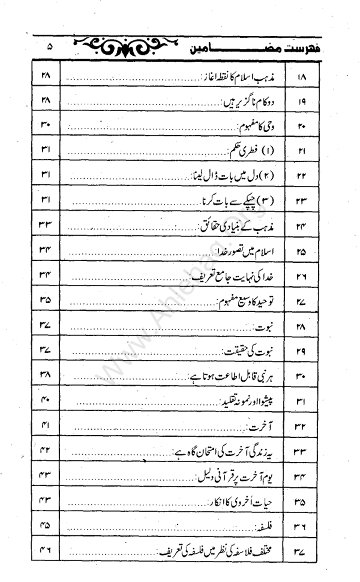 فہرست مضامین ۵
۱۸ مذہب اسلام کا نقطۂ آغاز: ۲۸
۱۹ دو کام ناگزیر ہیں: ۲۸
۲۰ وحی کا مفہوم: ۳۰
۲۱ (۱) فطری حکم: ۳۱
۲۲ (۲) دل میں بات ڈال لینا: ۳۱
۲۳ (۳) چپکے سے بات کرنا: ۳۱
۲۴ مذہب کے بنیادی حقائق: ۳۳
۲۵ اسلام میں تصور خدا: ۳۴
۲۶ خدا کی نہایت جامع تعریف: ۳۴
۲۷ توحید کا وسیع مفہوم: ۳۵
۲۸ نبوت: ۳۷
۲۹ نبوت کی حقیقت: ۳۷
۳۰ ہر نبی قابل اطاعت ہوتا ہے: ۳۸
۳۱ پیشوا اور نمونہ تقلید: ۴۰
۳۲ آخرت: ۴۱
۳۳ یہ زندگی آخرت کی امتحان گاہ ہے: ۴۲
۳۴ یوم آخرت پر قرآنی دلیل: ۴۳
۳۵ حیات اخروی کا انکار: ۴۳
۳۶ فلسفہ: ۴۵
۳۷ مختلف فلاسفہ کی نظر میں فلسفہ کی تعریف: ۴۶